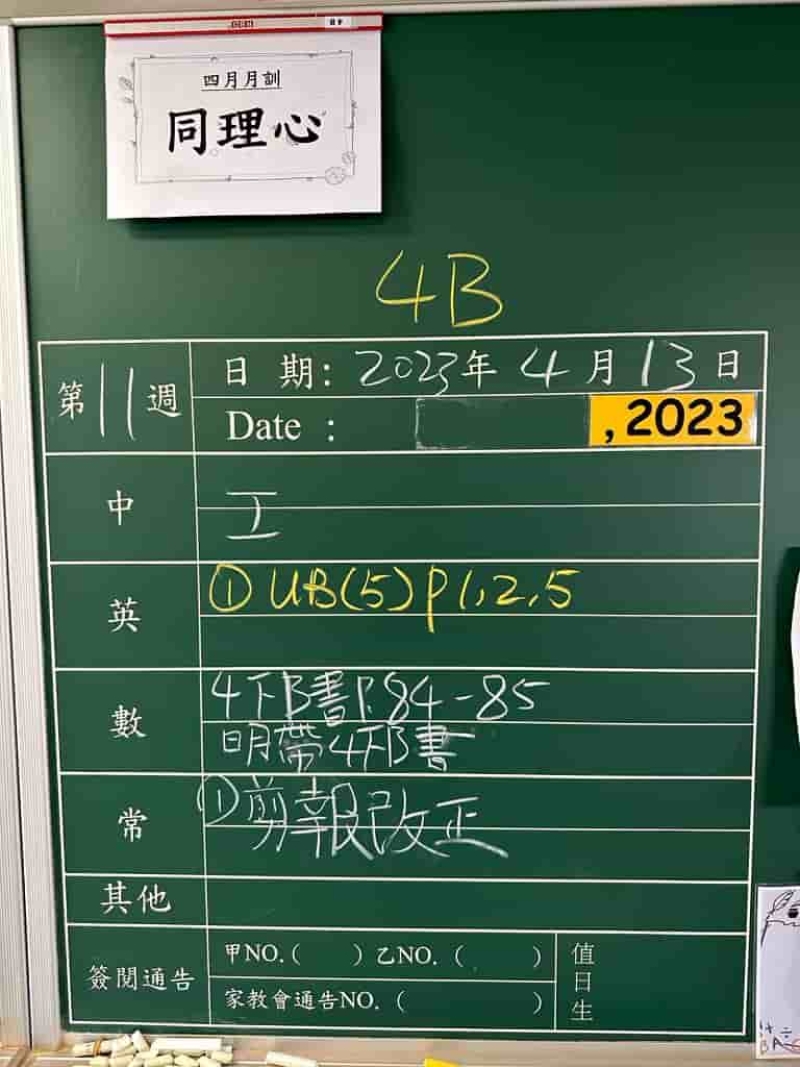 四月月訓
同理心
4B
第11週
日 期: 2023年 4月13日
Date : ,2023
中
工
英
① UB(5) P1,2,5
數
4下B書P.84-85
明帶4下B書
常
①剪報改正
其他
簽閱通告
甲NO.( ) 乙NO. ( )
家教會通告NO. ( )
值日生